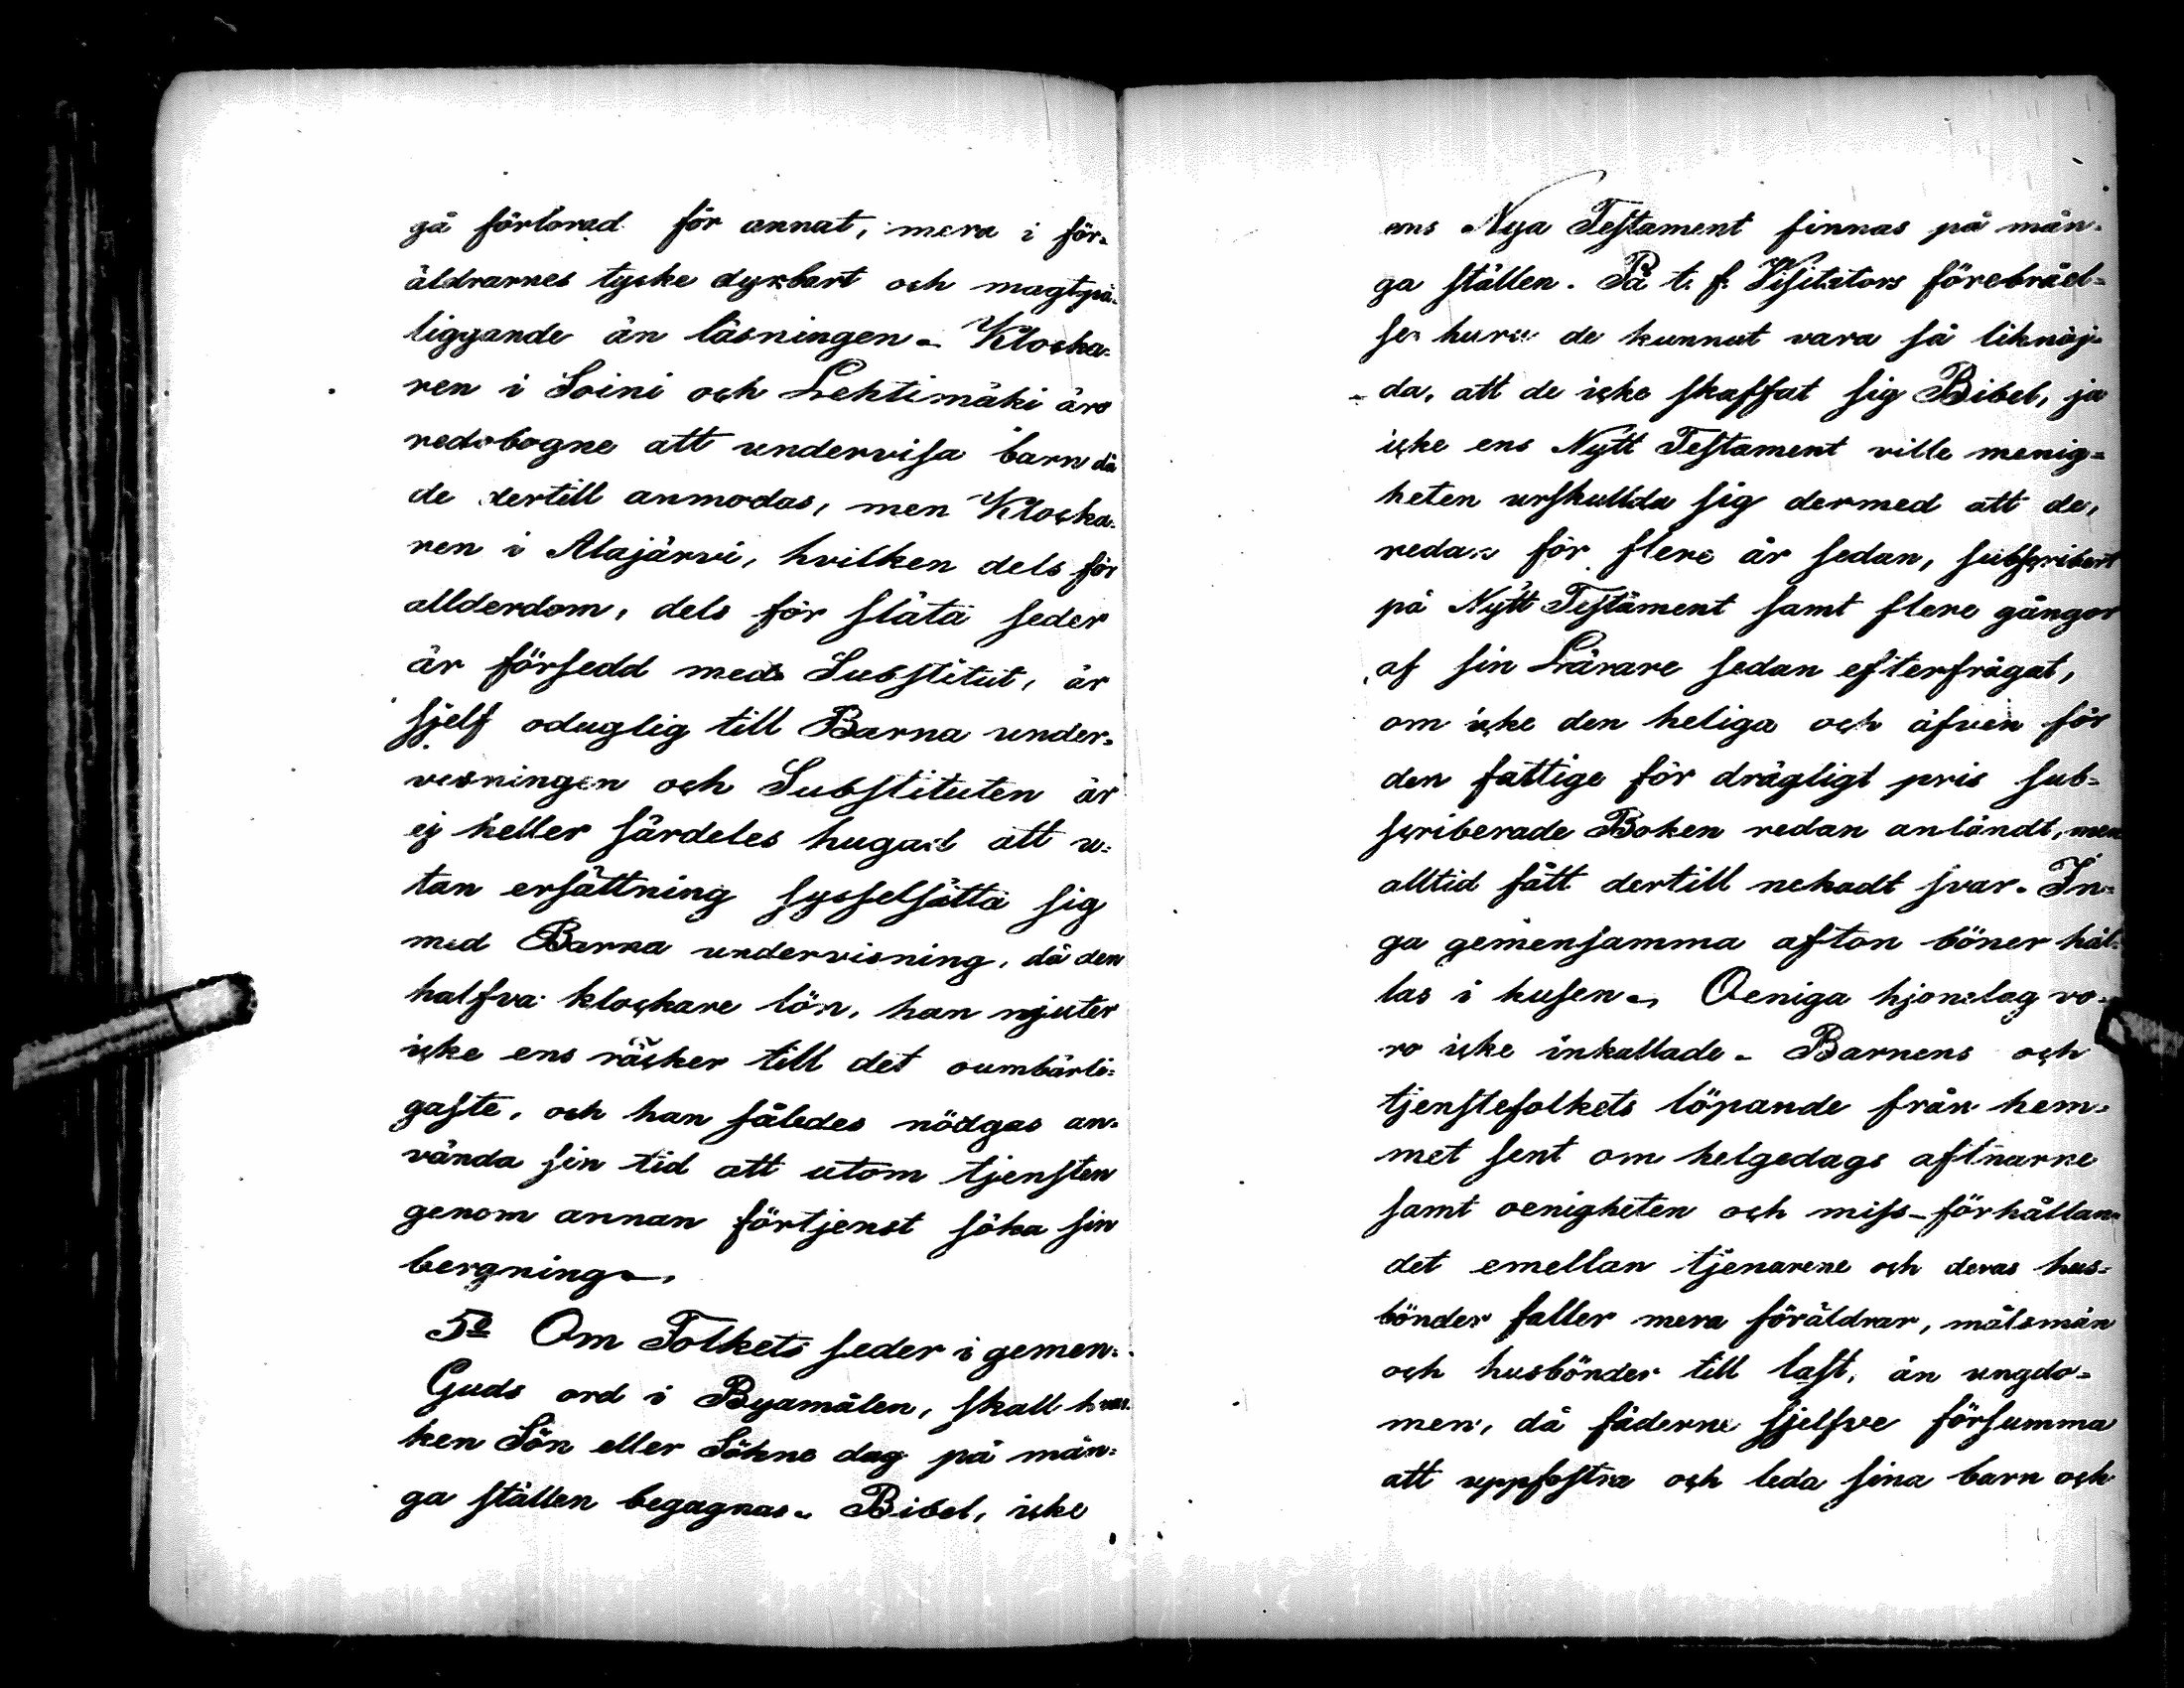 gå förlorad för annat, mera i för-
äldrarnes tycke dyrbart och magtpå-
liggande än läsningen. Klocka-
ren i Soini och Lehtimäki äro
redobogne att undervisa barn då
de dertill anmodas, men Klocka-
ren i Alajärvi, hvilken dels för
allderdom, dels för släta seder
är försedd med Substitut, är
sjelf oduglig till Barna under-
visningen och Substituten är
ej heller särdeles hugad att u-
tan ersättning sysselsätta sig
med Barna undervisning, då den
halfva klockare lön, han njuter
icke ens räcker till det oumbärli-
gaste, och han således nödgas an-
vända sin tid att utom tjensten
genom annan förtjenst söka sin
bergning.
5o Om Folkets seder i gemen.
Guds ord i Byamålen, skall hvar-
ken Sön eller Sökne dag på mån-
ga ställen begagnas. Bibel, icke
ens Nya Testament finnas på mån-
ga ställen. På t. f. Visitators förebråel-
se huru de kunnat vara så liknöj-
da, att de icke skaffat sig Bibel, ja
icke ens Nytt Testament ville menig-
heten urskullda sig dermed att de,
redan för flere år sedan, subscribert
på Nytt Testament samt flere gångor
af sin Lärare sedan efterfrågat,
om icke den heliga och äfven för
den fattige för drägligt pris sub-
scriberade Boken redan anländt, men
alltid fått dertill nekadt svar. In-
ga gemensamma afton böner hål-
las i husen. Oeniga hjonelag vo-
ro icke inkallade. Barnens och
tjenstefolkets löpande från hem-
met sent om helgedags aftnarne
samt oenigheten och miss-förhållan-
det emellan tjenarene och deras hus-
bönder faller mera föräldrar, målsmän
och husbönder till last, än ungdo-
men, då fäderne sjelfve försumma
att uppfostra och leda sina barn och